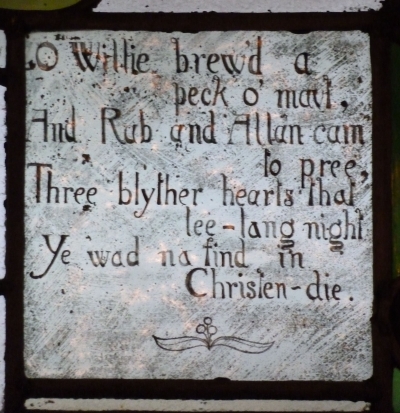 O Willie brew'd a
peck o' maut,
And Rab and Allan cam
to pree,
Three blyther hearts that
lee-lang night
Ye wad na find in
Christen-die.